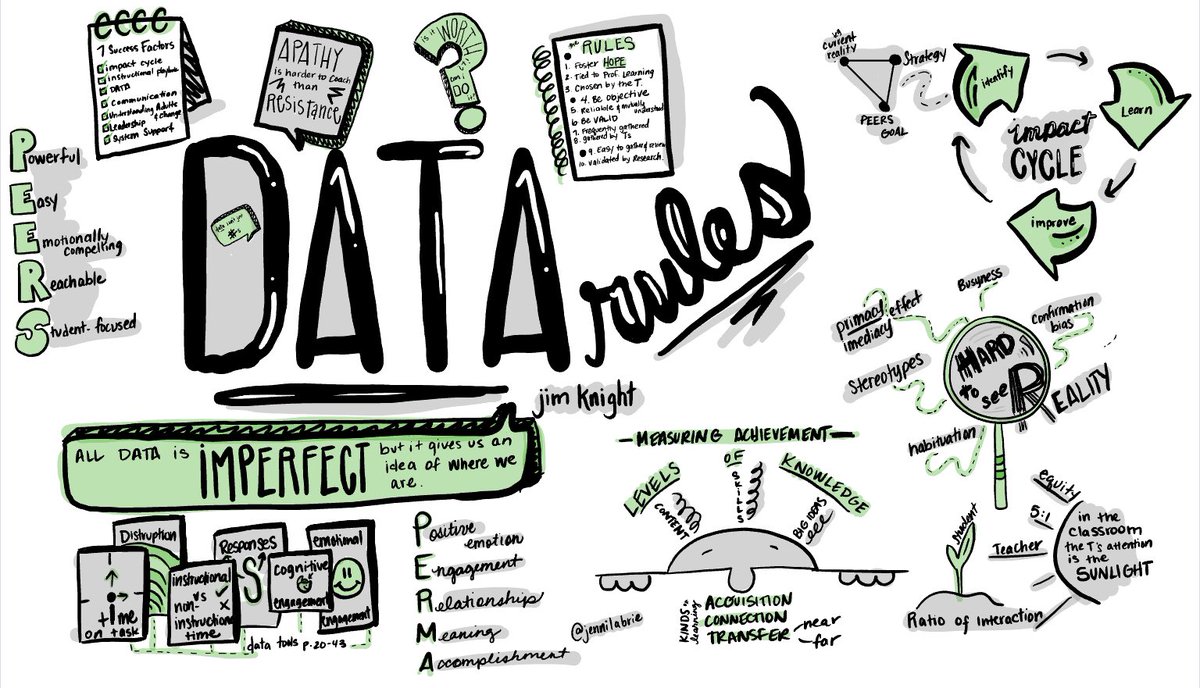 7 Success Factors
impact cycle
instructional playbook
DATA
Communication
Understanding Adults
Leadership & change
System Support
APATHY
is harder to coach
than
RESISTANCE
is it WORTH it?
can i
DO
it?
the RULES
1. Foster HOPE
2. Tied to Prof. Learning
3. Chosen by the T.
4. Be Objective
5. Reliable & mutually understood
6 Be VALID
7. Frequently gathered
8. gathered by T's
9. Easy to gather & review
10. Validated by Research.
vs
current
reality
Strategy
PEERS
GOAL
identify
Learn
improve
impact
CYCLE
Powerful
Easy
Emotionally
compelling
Reachable
Student-focused
#'s
DATA
rules
jim knight
ALL DATA is IMPERFECT but it gives us an
idea of where we
are.
primacy effect
imediacy
Busyness
Confirmation
bias
Stereotypes
habituation
HARD
to see
REALITY
Distruption
time
on task
instructional
vs
non-
instructional
time
Responses
cognitive
engagement
emotional
engagement
data tools p. 20-43
Positive
emotion
Engagement
Relationship
Meaning
Accomplishment
MEASURING ACHIEVEMENT
OF
LEVELS
SKILLS
KNOWLEDGE
CONTENT
BIG IDEAS
KINDS of learning
ACQUISITION
CONNECTION
TRANSFER
near
far
@jennilabrie
student
Ratio of Interaction
equity
5:1
Teacher
in the
classroom
the T's attention
is the
SUNLIGHT